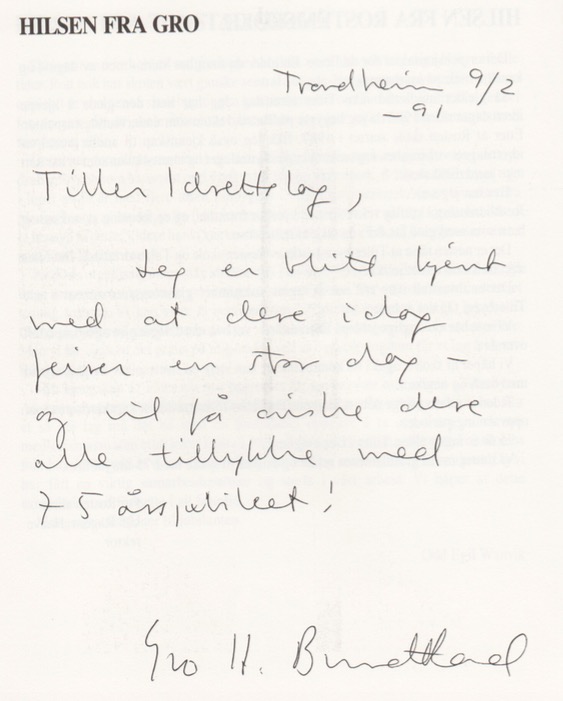 HILSEN FRA GRO
Trondheim 9/2
-91
Tiller Idrettslag,
Jeg er blitt kjent
med at dere idag
feirer en stor dag -
og vil få ønske dere
alle tillykke med
75 årsjubileet!
Gro H. Brundtland